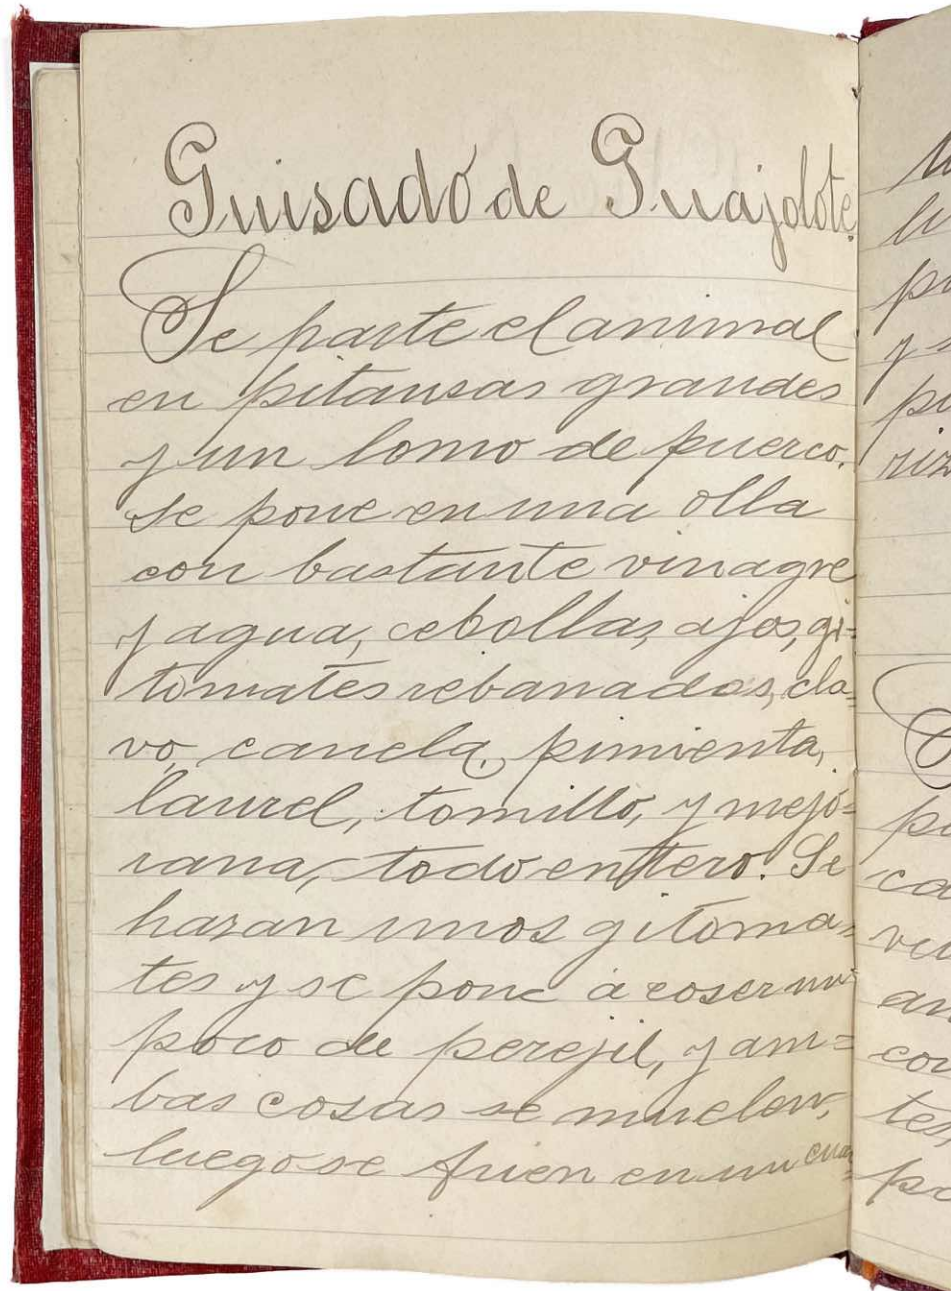 Guisado de Guajolote.
Se parte el animal
en pitansas grandes
y un lomo de puerco.
se pone en una olla
con bastante vinagre
y agua, cebollas, ajos, gi=
tomates rebanados, cla=
vo, canela, pimienta,
laurel, tomillo, y mejo=
rana, todo enttero. Se
hazan unos gitoma=
tes y se pone á coser un
poco de perejil, y am=
bas cosas se muelen,
luego se frien en un cua=